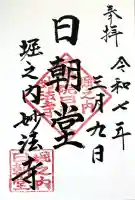 奉拝
令和七年
三月九日
日朝堂
堀之内妙法寺